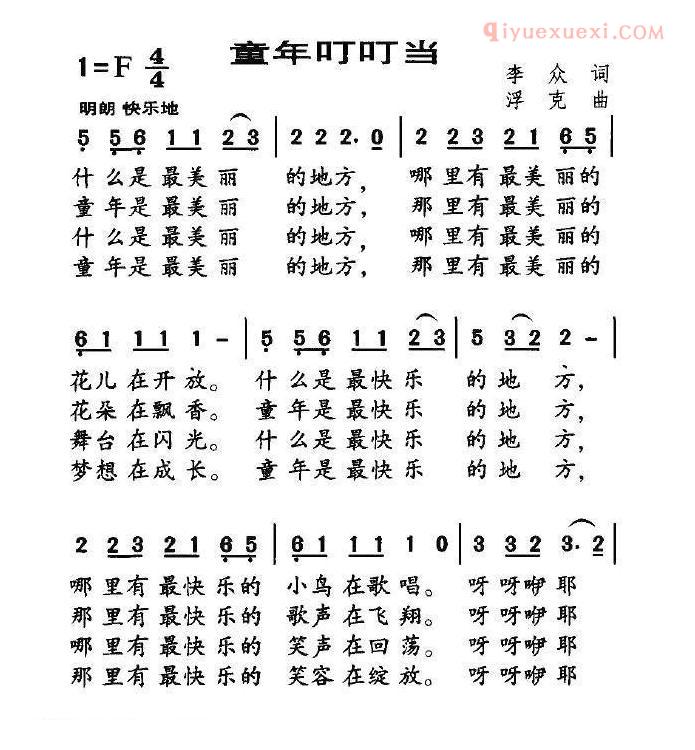 qiyuexuexi.com
童年叮叮当
1=F 4/4
李众词
浮克曲
明朗 快乐地
5 5 6 1 1 2 3 | 2 2 2 2. 0 | 2 2 3 2 1 6 5 |
什么是最美丽 的地方, 哪里有最美丽的
童年是最美丽 的地方, 那里有最美丽的
什么是最美丽 的地方, 哪里有最美丽的
童年是最美丽 的地方, 那里有最美丽的
6 1 1 1 1 - | 5 5 6 1 1 2 3 | 5 3 2 2 - |
花儿在开放。 什么是最快乐 的地方,
花朵在飘香。 童年是最快乐 的地方,
舞台在闪光。 什么是最快乐 的地方,
梦想在成长。 童年是最快乐 的地方,
2 2 3 2 1 6 5 | 6 1 1 1 1 0 | 3 3 2 3. 2 |
哪里有最快乐的 小鸟在歌唱。 呀呀咿耶
那里有最快乐的 歌声在飞翔。 呀呀咿耶
哪里有最快乐的 笑声在回荡。 呀呀咿耶
那里有最快乐的 笑容在绽放。 呀呀咿耶